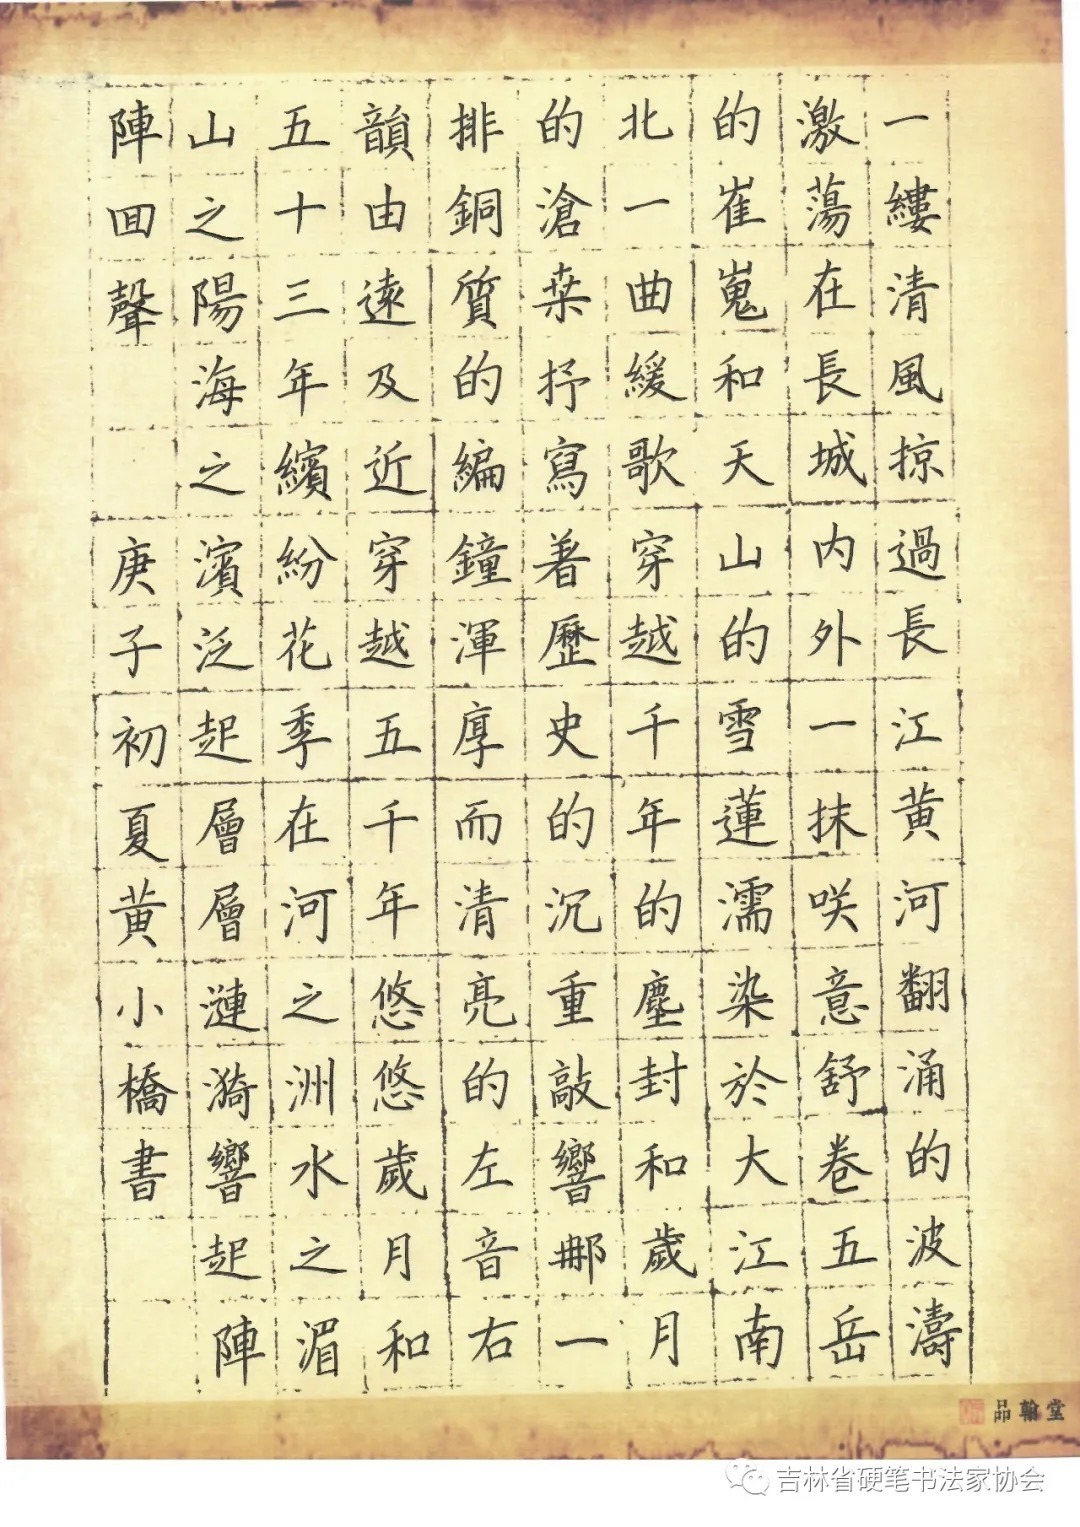 一縷清風掠過長江黄河翻涌的波濤
激蕩在長城内外一抹咲意舒卷五岳
的崔嵬和天山的雪蓮濡染於大江南
北一曲緩歌穿越千年的塵封和歲月
的滄桒抒寫着歷史的沉重敲響那一
排銅質的編鐘渾厚而清亮的左音右
韻由遠及近穿越五千年悠悠歲月和
五十三年繽紛花季在河之洲水之湄
山之陽海之濱泛起層層漣漪響起陣
陣囬聲
庚子初夏黄小橋書
品翰堂
吉林省硬笔书法家协会